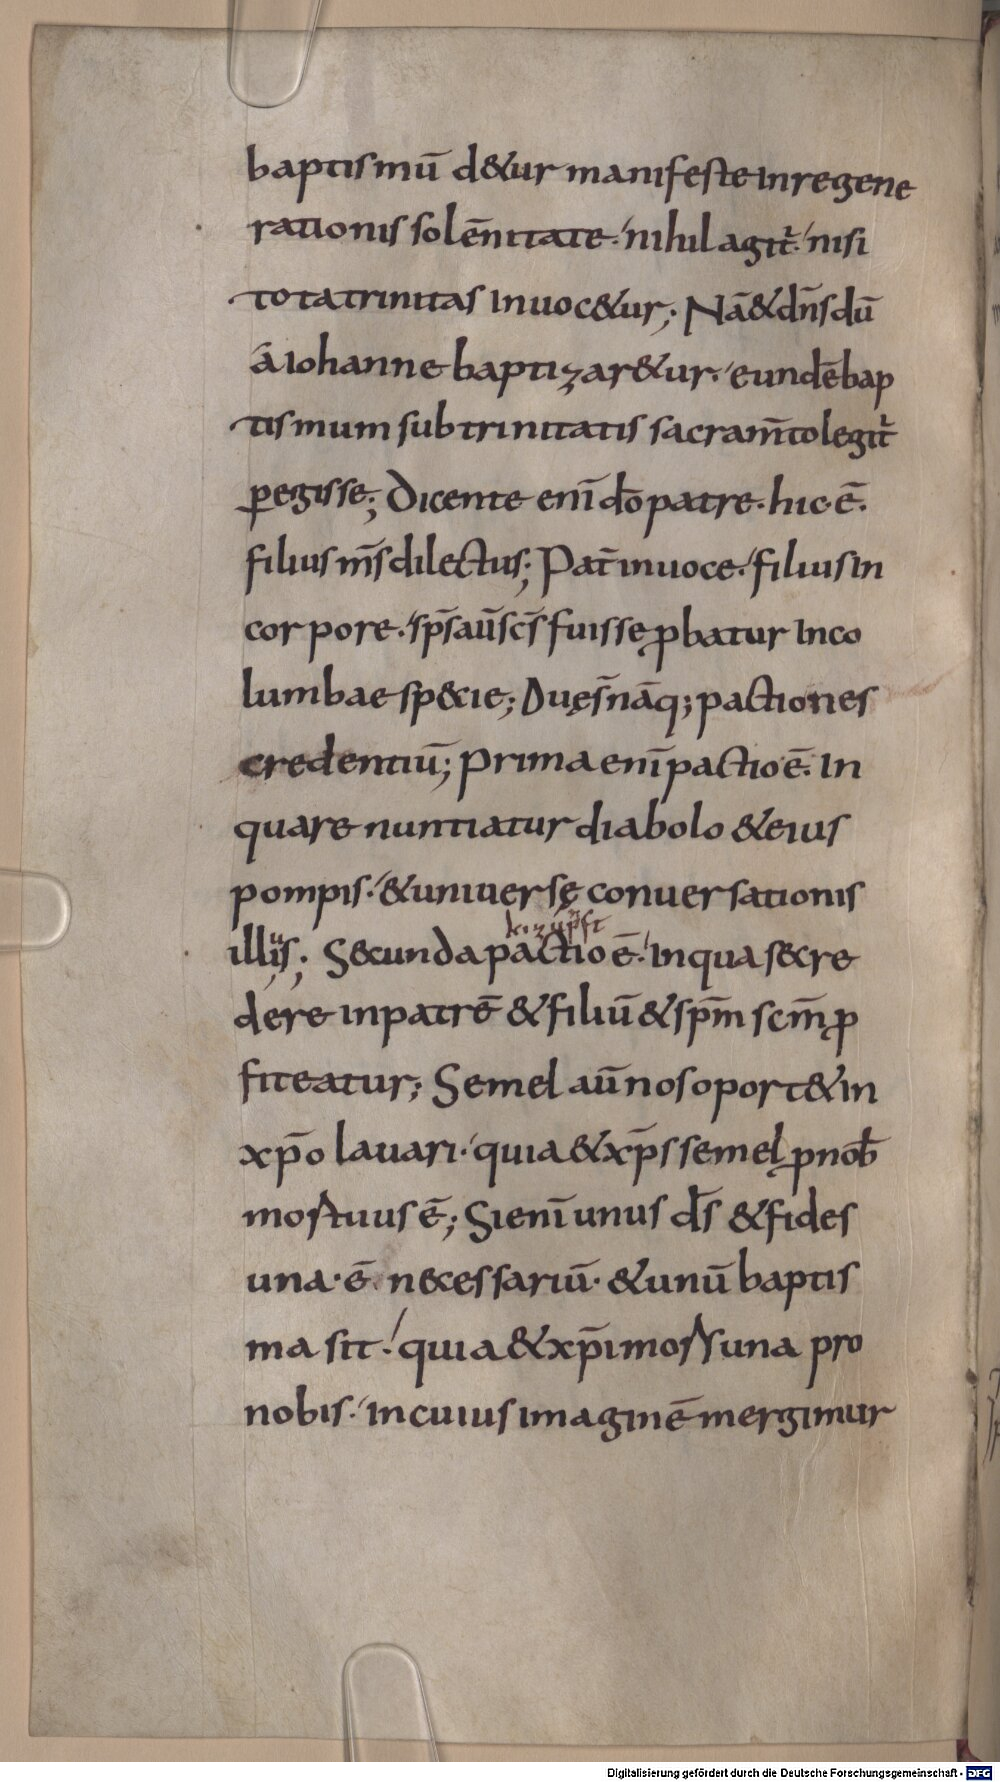 baptismū d&ur manifeste inregene
rationis solēnitate. nihil agit̄. nisi
totatrinitas inuoc&ur; Nā&dn̄sdū
a iohanne baptizar&ur. eundēbap
tismum subtrinitatis sacram̄tolegit̄
ꝑegisse; Dicente enī dōpatre. hic.ē.
filius m̄sdilectus; Pat̄inuoce. filiusin
corpore. sp̄saūsc̄s fuisseꝓbatur Inco
lumbae sp&cie; Duęs̄nāq; pactiones
credentiū; Prima enīpactioē. In
quare nuntiatur diabolo &eius
pompis. &uniuersę conuersationis
illiꝰ; Secunda pactio ē. Inquasecre
dere inpatrē &filiū&sp̄m sc̄mꝓ
fiteatur; Semel aūnosoport&in
xp̄o lauari. quia&xp̄ssemelꝓnob̄
mortuus ē; Sienī unus d̄s &fides
una.ē necessariū. &unū baptis
ma sit. quia&xp̄imors una pro
nobis. incuius imaginē mergimur